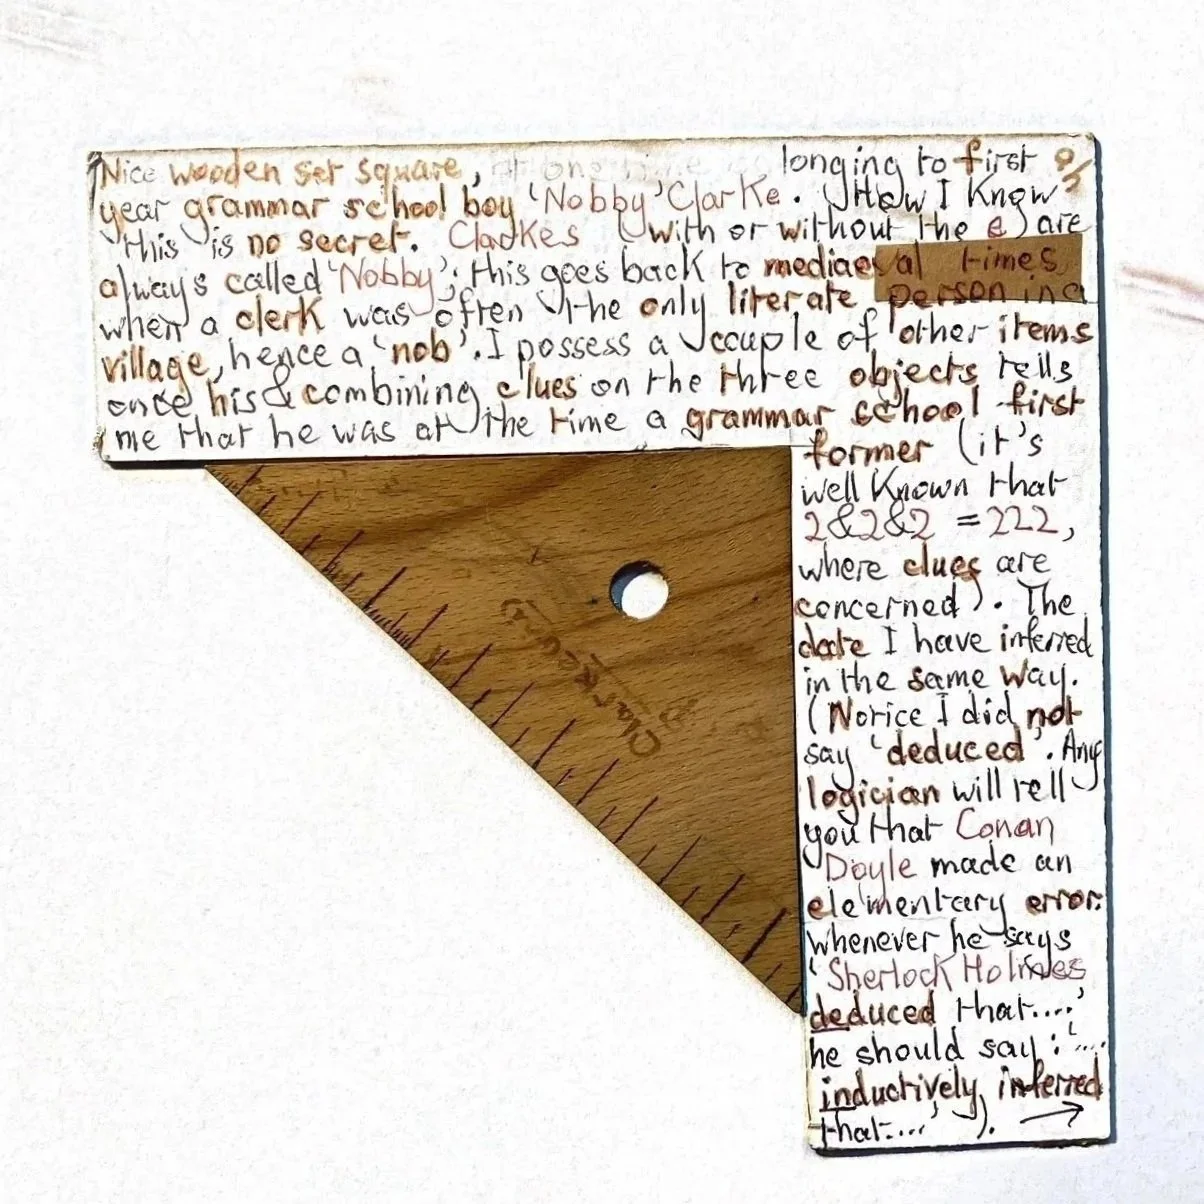 Nice wooden set square, at one time longing to first
year grammar school boy 'Nobby' Clarke. How I Know
this is no secret. Clarkes (with or without the e) are
always called 'Nobby'; this goes back to mediaeval times
when a clerk was often the only literate person in a
village, hence a 'nob'. I possess a couple of other items
once his & combining clues on the three objects tells
me that he was at the time a grammar school first
former (it's
well Known that
2&2&2 = 222,
where clues are
concerned). The
date I have inferred
in the same way.
(Notice I did not
say 'deduced'. Any
logician will tell
you that Conan
Doyle made an
elementary error:
whenever he says
'Sherlock Holmes
deduced that....'
he should say: '....
inductively inferred
that....' ). →
Clarke